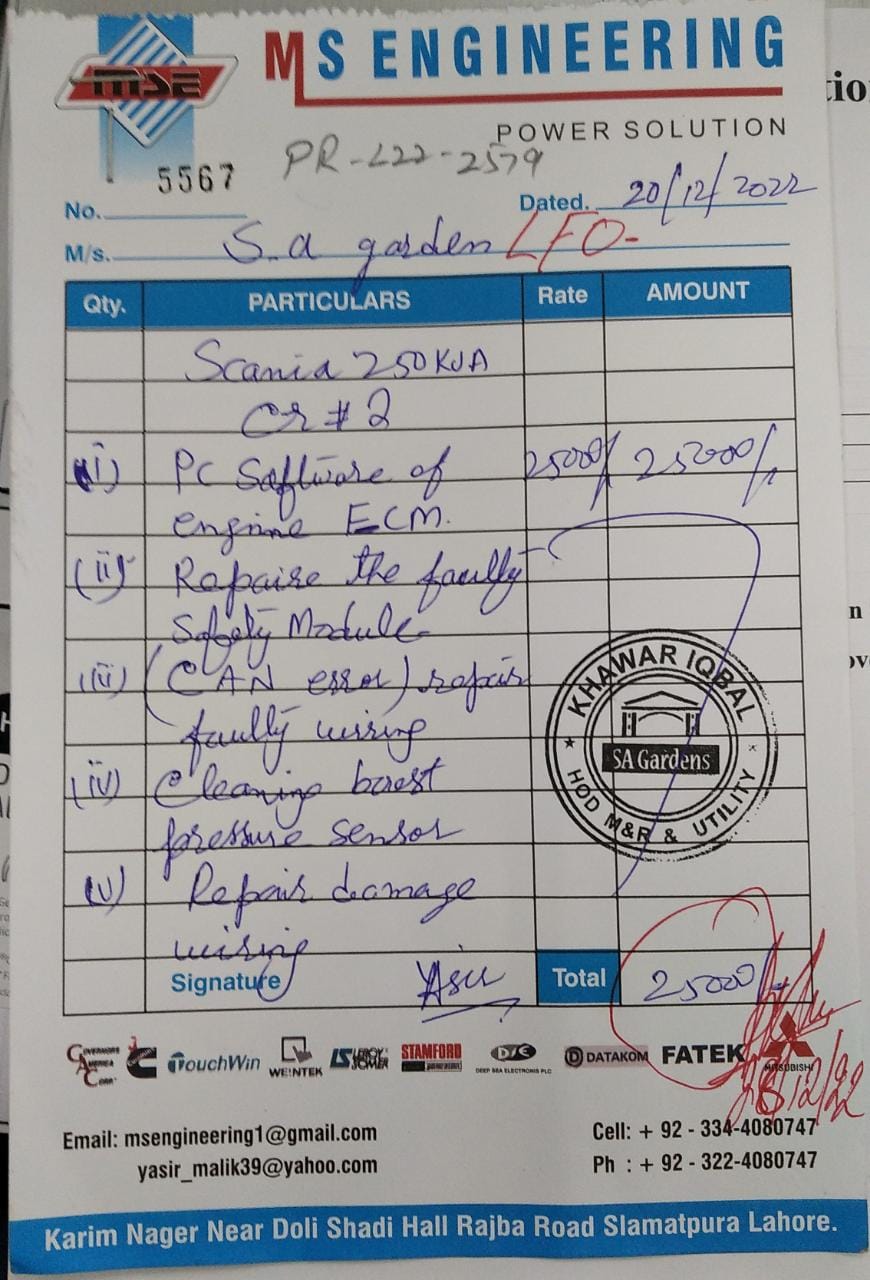 MSE
MS ENGINEERING
POWER SOLUTION
PR-L22-2579
5567
No.
Dated. 20/12/2022
M/s. S.a garden LFO-
Qty. PARTICULARS Rate AMOUNT
Scania 250KVA
# 2
(i) PC Software of 25000/ 25000/-
engine ECM.
(ii) Repaire the faulty
Safety Module
(iii) (CAN error) repair
faulty wiring
(iv) Cleaning boost
pressure sensor
(v) Repair damage
wiring
KHAWAR IQBAL
SA Gardens
HOD M&R & UTILITY
Signature Total 25000/-
GOVERNORS AMERICA CORP. TouchWin WEINTEK LS LEROY SOMER STAMFORD DSE DEEP SEA ELECTRONICS PLC DATAKOM FATEK MITSUBISHI
/12/22
Email: msengineering1@gmail.com
yasir_malik39@yahoo.com
Cell: + 92 - 334-4080747
Ph : + 92 - 322-4080747
Karim Nager Near Doli Shadi Hall Rajba Road Slamatpura Lahore.